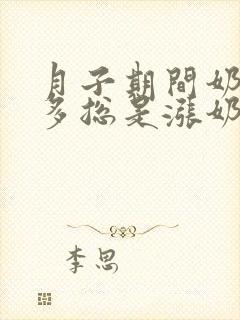 月子期間奶
多总是漲奶
李思